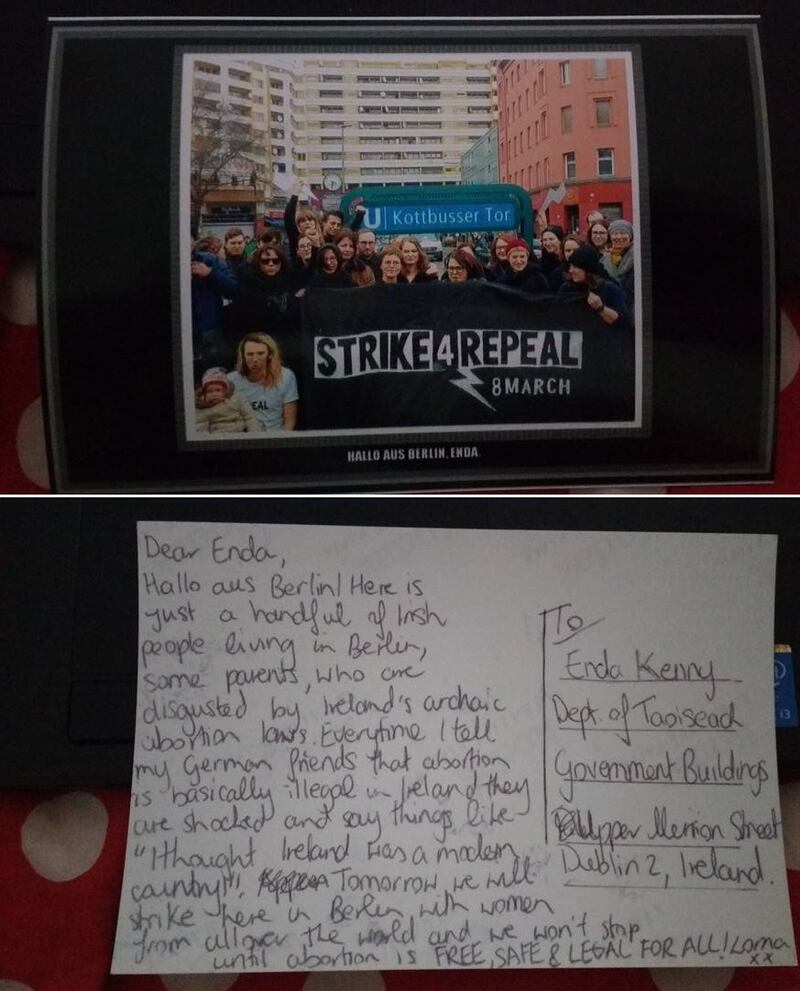 U Kottbusser Tor
STRIKE4REPEAL
8MARCH
EAL
HALLO AUS BERLIN, ENDA.
Dear Enda,
Hallo aus Berlin! Here is
just a handful of Irish
people living in Berlin,
some parents, who are
disgusted by Ireland's archaic
abortion laws. Everytime I tell
my German friends that abortion
is basically illegal in Ireland they
are shocked and say things like
"I thought Ireland was a modern
country!". Tomorrow we will
strike here in Berlin with women
from all over the world and we won't stop
until abortion is FREE, SAFE & LEGAL FOR ALL! Lorna
xx
To
Enda Kenny
Dept. of Taoiseach
Government Buildings
Upper Merrion Street
Dublin 2, Ireland.
i3